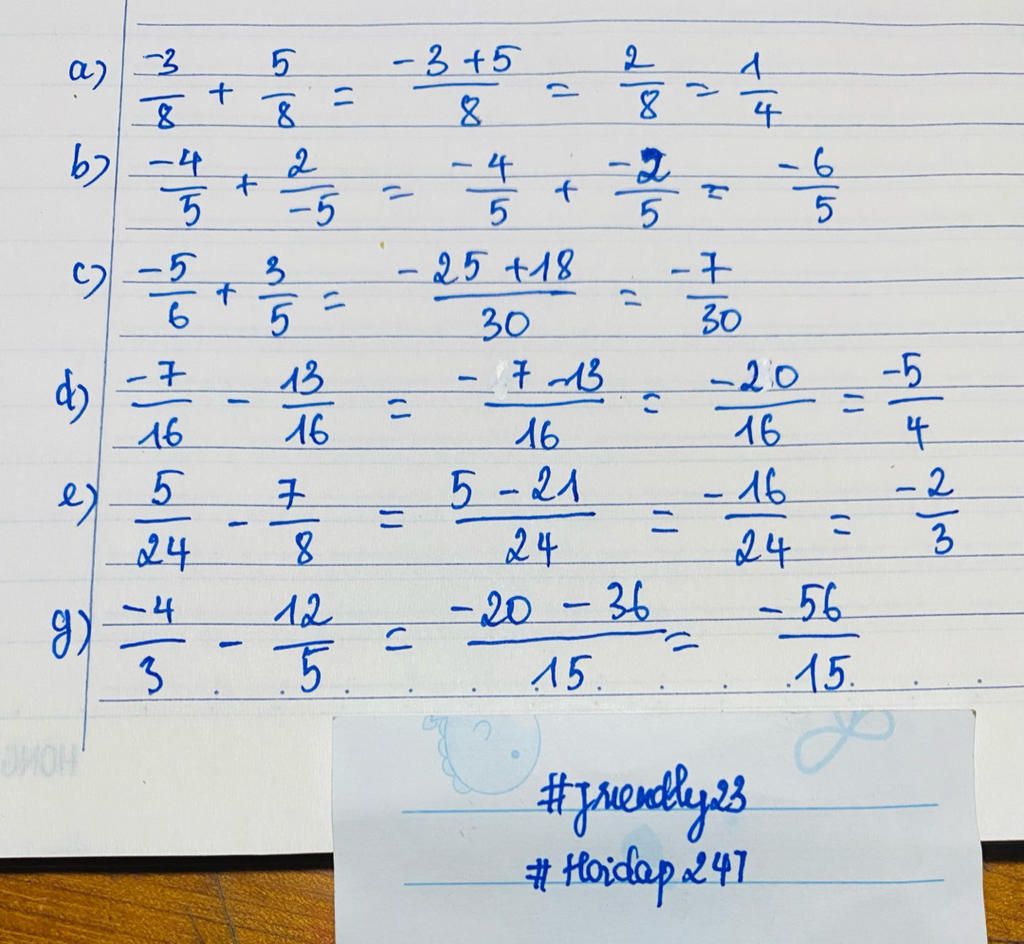 a) -3/8 + 5/8 = -3+5/8 = 2/8 = 1/4
b) -4/5 + 2/-5 = -4/5 + -2/5 = -6/5
c) -5/6 + 3/5 = -25+18/30 = -7/30
d) -7/16 - 13/16 = -7-13/16 = -20/16 = -5/4
e) 5/24 - 7/8 = 5-21/24 = -16/24 = -2/3
g) -4/3 - 12/5 = -20-36/15 = -56/15
HONG
#friendly23
#Hoidap247